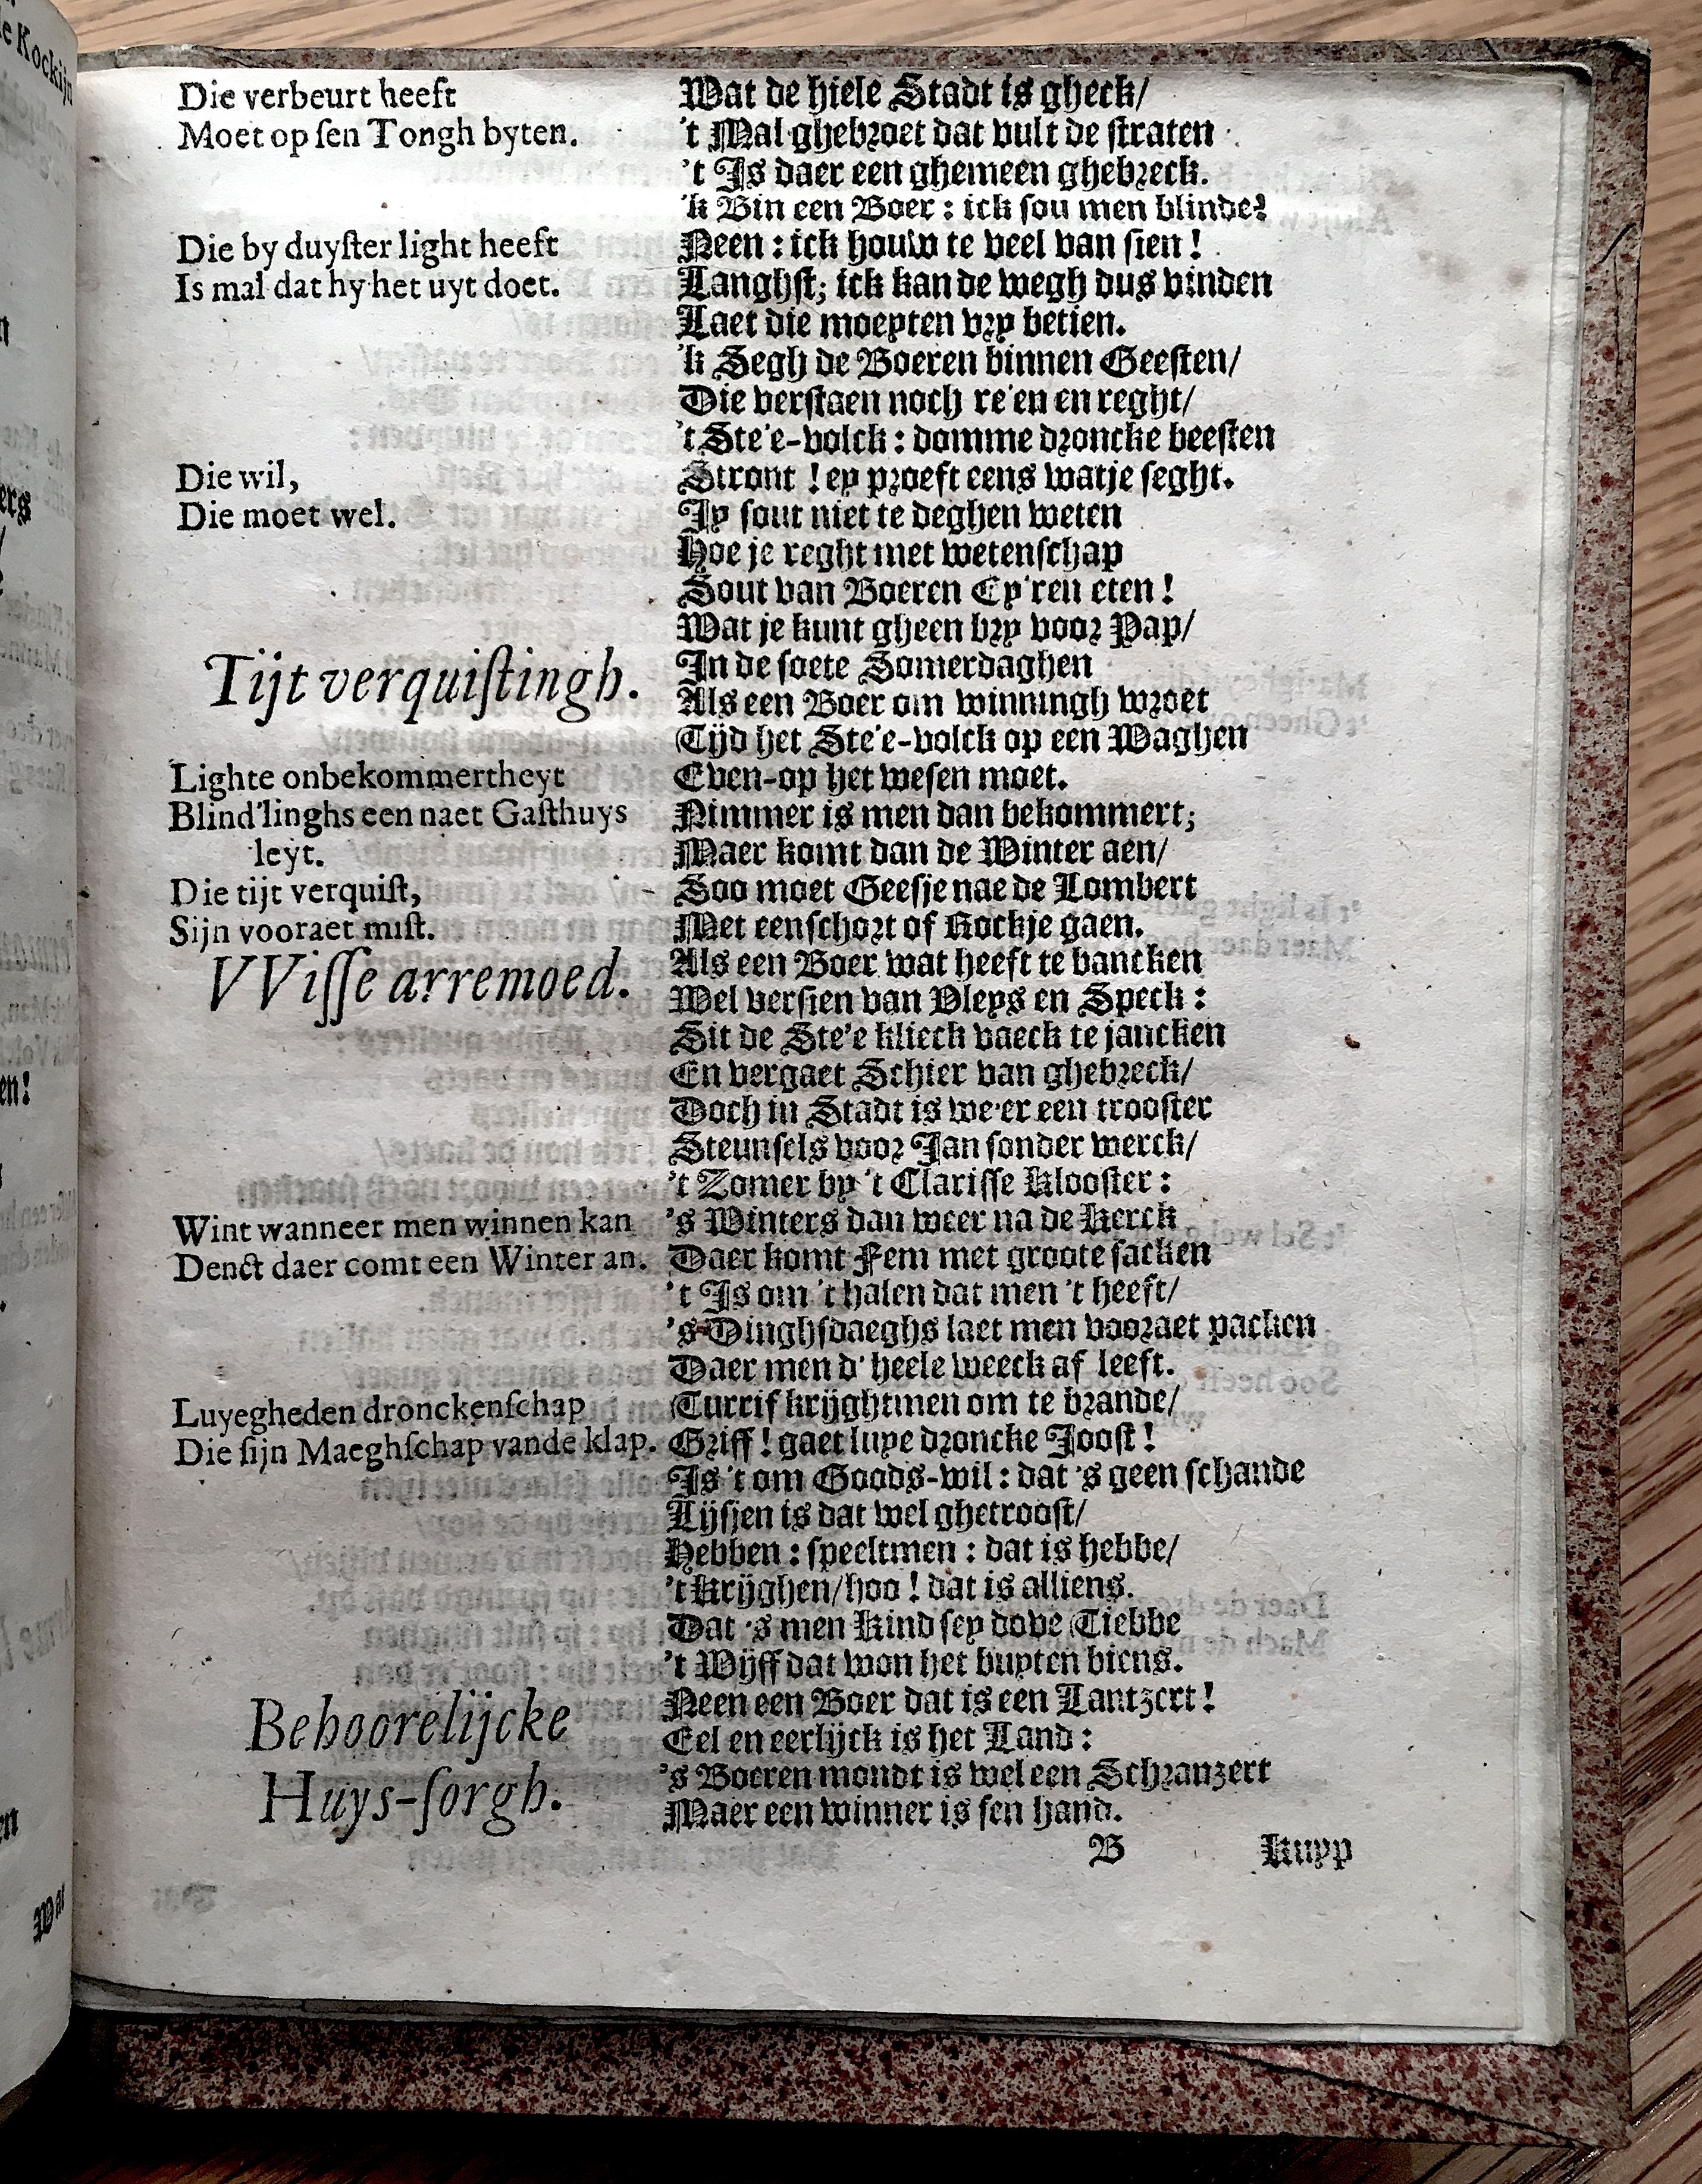 Die verbeurt heeft
Moet op ſen Tongh byten.
Die by duyſter light heeft
Is mal dat hy het uyt doet.
Die wil,
Die moet wel.
Tijt verquiſtingh.
Lighte onbekommertheyt
Blind'linghs een naet Gaſthuys
leyt.
Die tijt verquiſt,
Sijn vooraet miſt.
VViſſe arremoed.
Wint wanneer men winnen kan
Denct daer comt een Winter an.
Luyegheden dronckenſchap
Die ſijn Maeghſchap vande klap.
Behoorelijcke
Huys-ſorgh.
Wat de hiele Stadt is gheck/
't Mal ghebroet dat vult de ſtraten
't Is daer een ghemeen ghebreck.
'k Bin een Boer : ick ſou men blinde?
Neen : ick houw te veel van ſien !
Langhſt; ick kan de wegh dus vinden
Laet die moeyten vry betien.
'k Segh de Boeren binnen Geeſten/
Die verſtaen noch re'en en reght/
't Ste'e-volck : domme droncke beeſten
Stront ! ey proeft eens watje ſeght.
Jy ſout niet te deghen weten
Hoe je reght met wetenſchap
Sout van Boeren Ey'ren eten !
Wat je kunt gheen bry voor Pap/
In de ſoete Somerdaghen
Als een Boer om winningh wroet
Tijd het Ste'e-volck op een Waghen
Even-op het weſen moet.
Nimmer is men dan bekommert;
Maer komt dan de Winter aen/
Soo moet Geeſje nae de Lombert
Met een ſchort of Rockje gaen.
Als een Boer wat heeft te bancken
Wel verſien van Vleys en Speck :
Sit de Ste'e klieck vaeck te jancken
En vergaet Schier van ghebreck/
Doch in Stadt is we'er een trooſter
Steunſels voor Jan ſonder werck/
't Zomer by 't Clariſſe Klooſter :
's Winters dan weer na de Kerck
Daer komt Fem met groote ſacken
't Is om 't halen dat men 't heeft/
's Dinghſdaeghs laet men vooraet packen
Daer men d' heele weeck af leeft.
Turrif krijghtmen om te brande/
Griff ! gaet luye droncke Jooſt !
Is 't om Goods-wil : dat 's geen ſchande
Lijſjen is dat wel ghetrooſt/
Hebben : ſpeeltmen : dat is hebbe/
't Krijghen/hoo ! dat is alliens.
Dat 's men Kind ſey dove Tiebbe
't Wijff dat won het buyten biens.
Neen een Boer dat is een Lantzert !
Eel en eerlijck is het Land :
's Boeren mondt is wel een Schranzert
Maer een winner is ſen hand.
B Kupp